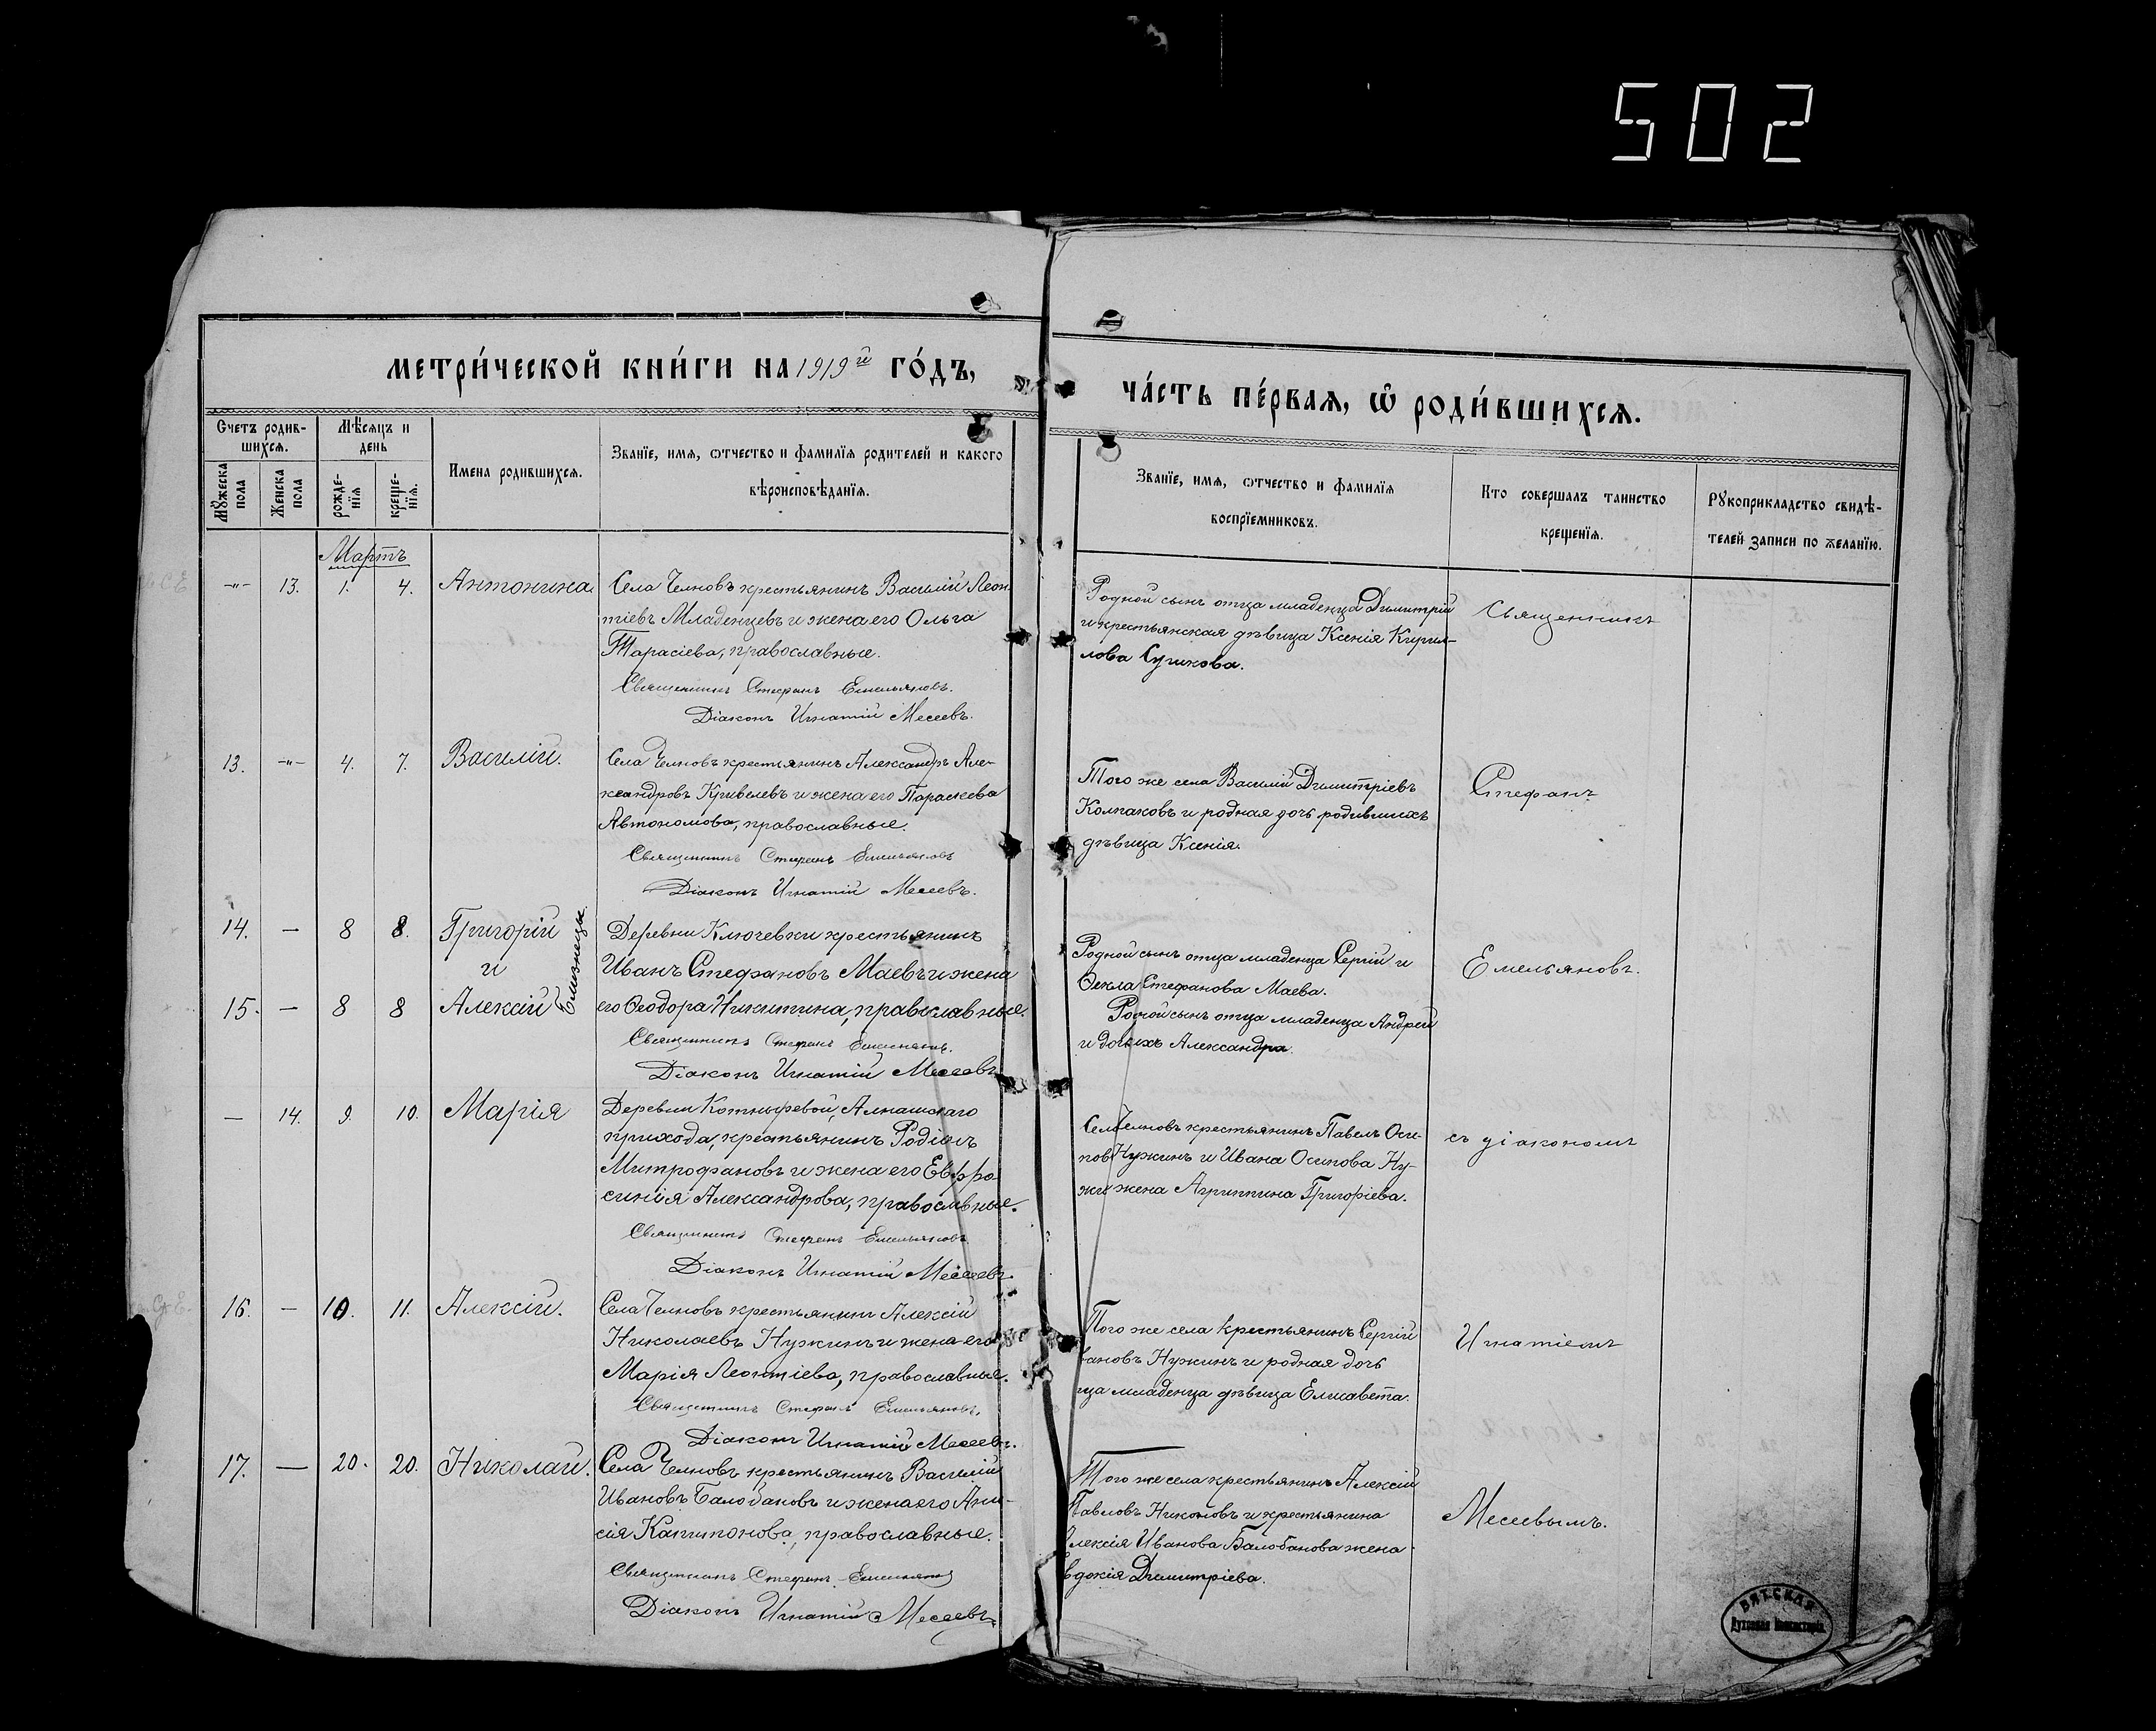 502
МЕТРИ́ЧЕСКОЙ КНИ́ГИ НА 1919й ГО́ДЪ,
ЧА́СТЬ ПЕ́РВАЯ, Ѡ҆ РОДИ́ВШИХСЯ.
Счетъ родив-
шихся.
Мѣсяцъ и
день
Мужеска
пола
Женска
пола
рожде-
нїя
креще-
нїя.
Имена родившихся.
Званїе, имя, отчество и фамилїя родителей и какого
вѣроисповѣданїя.
Званїе, имя, отчество и фамилїя
воспрїемниковъ.
Кто совершалъ таинство
крещенїя.
Рукоприкладство свидѣ-
телей записи по желанїю.
Мартъ
-"- 13. 1. 4. Антонина.
Села Челновъ крестьянинъ Василій Леон-
тіевъ Младенцевъ и жена его Ольга
Тарасіева, православные.
Священникъ Стефанъ Емельяновъ.
Діаконъ Игнатій Месеевъ.
Родной сынъ отца младенца Димитрій
и крестьянская дѣвица Ксенія Кирил-
лова Сушкова.
Священникъ
13. -"- 4. 7. Василій.
Села Челновъ крестьянинъ Александръ Але-
ксандровъ Кривелевъ и жена его Параскева
Автономова, православные.
Священникъ Стефанъ Емельяновъ
Діаконъ Игнатій Месеевъ.
Того же села Василій Димитріевъ
Колпаковъ и родная дочь родившихъ
дѣвица Ксенія.
Стефанъ
14. — 8 8. Григорій
и
15. — 8 8 Алексій
Близнецы.
Деревни Ключевки крестьянинъ
Иванъ Стефановъ Маевъ и жена
его Ѳеодора Никитина, православные.
Священникъ Стефанъ Емельяновъ.
Діаконъ Игнатій Месеевъ
Родной сынъ отца младенца Сергій и
Ѳекла Стефанова Маева.
Родной сынъ отца младенца Андрей
и дочь ихъ Александра.
Емельяновъ.
— 14. 9. 10. Марія
Деревни Котныревой, Алнашскаго
прихода, крестьянинъ Родіонъ
Митрофановъ и жена его Евфро-
синія Александрова, православные.
Священникъ Стефанъ Емельяновъ
Діаконъ Игнатій Месеевъ.
Села Челновъ крестьянинъ Павелъ Оси-
повъ Нужинъ и Ивана Осипова Ну-
жи жена Агриппина Григоріева.
съ діакономъ
16. — 10. 11. Алексій.
Села Челновъ крестьянинъ Алексій
Николаевъ Нужинъ и жена его
Марія Леонтіева, православные.
Священникъ Стефанъ Емельяновъ.
Діаконъ Игнатій Месеевъ.
Того же села крестьянинъ Сергій
вановъ Нужинъ и родная дочь
ца младенца дѣвица Елисавета.
Игнатіемъ
17. — 20. 20. Николай.
Села Челновъ крестьянинъ Василій
Ивановъ Балобановъ и жена его Ани-
сія Капитонова, православные.
Священникъ Стефанъ Емельяновъ
Діаконъ Игнатій Месеевъ.
Того же села крестьянинъ Алексій
Павловъ Никоновъ и крестьянина
Алексія Иванова Балобанова жена
вдокія Димитріева.
Месеевымъ.
ВЯТСКАЯ
Духовная Консисторія